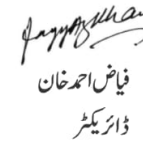 فیاض احمد خان
ڈائریکٹر